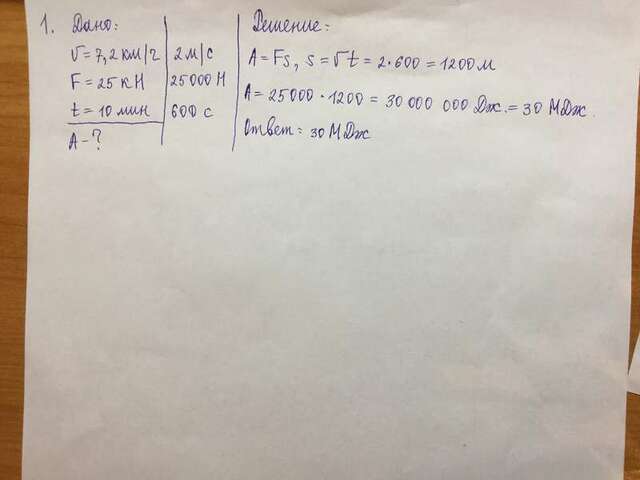 1. Дано:
v = 7,2 км/ч 2 м/с
F = 25 кН 25000 Н
t = 10 мин 600 с
A - ?
Решение:
A = Fs, s = vt = 2·600 = 1200 м
A = 25000 · 1200 = 30 000 000 Дж. = 30 МДж.
Ответ: 30 МДж